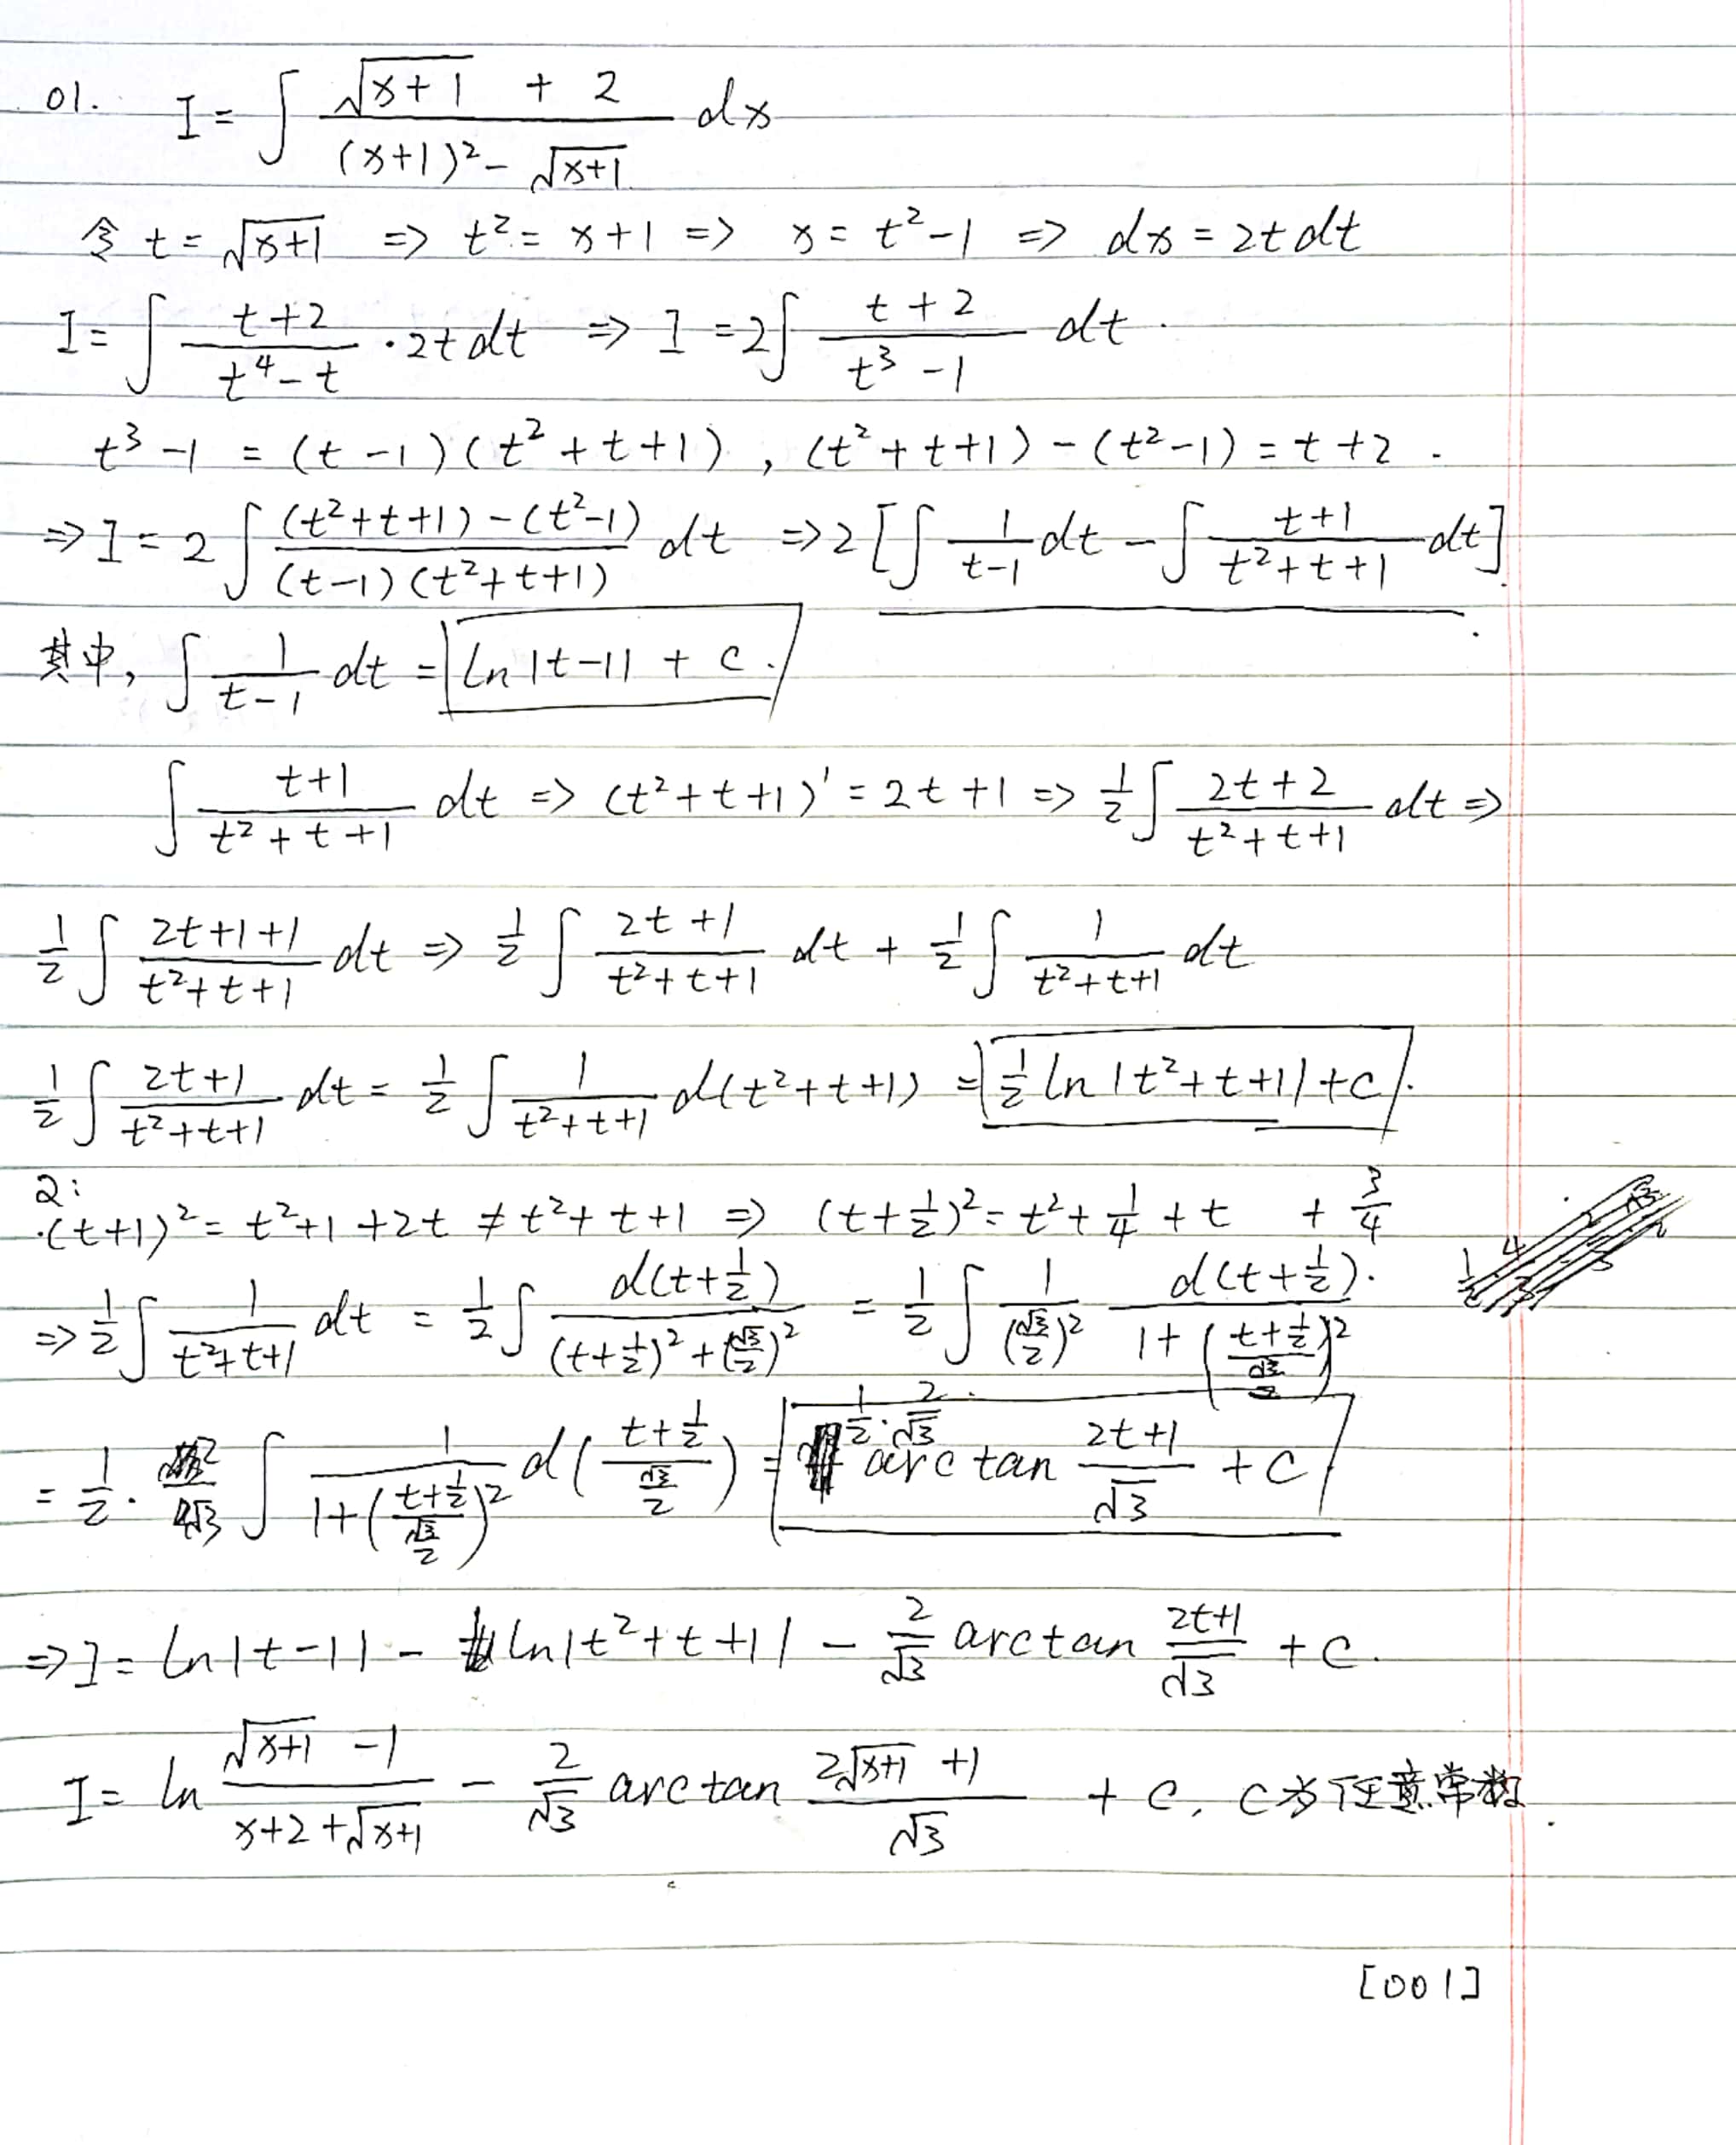 01. I = ∫ (√(x+1) + 2)/((x+1)² - √(x+1)) dx
令 t = √(x+1) => t² = x+1 => x = t²-1 => dx = 2t dt
I = ∫ (t+2)/(t⁴-t) · 2t dt => I = 2∫ (t+2)/(t³-1) dt.
t³-1 = (t-1)(t²+t+1), (t²+t+1)-(t²-1) = t+2.
=> I = 2∫ ((t²+t+1)-(t²-1))/((t-1)(t²+t+1)) dt => 2[∫ 1/(t-1) dt - ∫ (t+1)/(t²+t+1) dt].
其中, ∫ 1/(t-1) dt = ln|t-1| + c.
∫ (t+1)/(t²+t+1) dt => (t²+t+1)' = 2t+1 => ½∫ (2t+2)/(t²+t+1) dt =>
½∫ (2t+1+1)/(t²+t+1) dt => ½∫ (2t+1)/(t²+t+1) dt + ½∫ 1/(t²+t+1) dt
½∫ (2t+1)/(t²+t+1) dt = ½∫ 1/(t²+t+1) d(t²+t+1) = ½ ln|t²+t+1| + c.
2:
·(t+1)² = t²+1+2t ≠ t²+t+1 => (t+½)² = t²+¼+t + ¾
=> ½∫ 1/(t²+t+1) dt = ½∫ d(t+½)/((t+½)²+(√3/2)²) = ½∫ 1/(√3/2)² d(t+½)/(1+((t+½)/(√3/2))²).
= ½· 2/√3 ∫ 1/(1+((t+½)/(√3/2))²) d((t+½)/(√3/2)) = ½·2/√3 arctan (2t+1)/√3 + c
=> I = ln|t-1| - ln|t²+t+1| - 2/√3 arctan (2t+1)/√3 + c.
I = ln (√(x+1) -1)/(x+2+√(x+1)) - 2/√3 arctan (2√(x+1) +1)/√3 + c, c为任意常数.
[001]